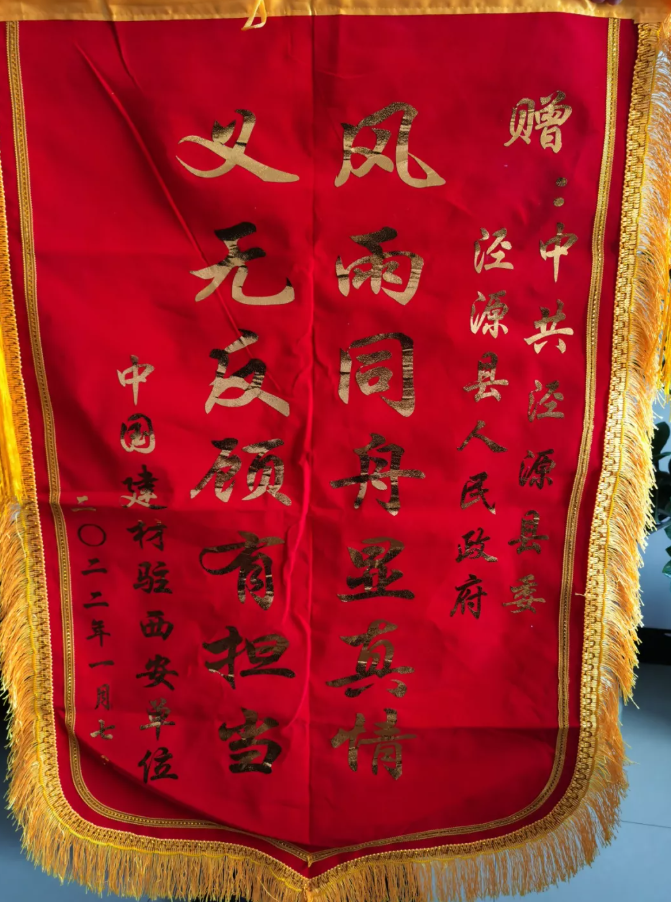 赠：中共泾源县委
泾源县人民政府
风雨同舟显真情
义无反顾有担当
中国建材驻西安单位
二〇二二年一月七